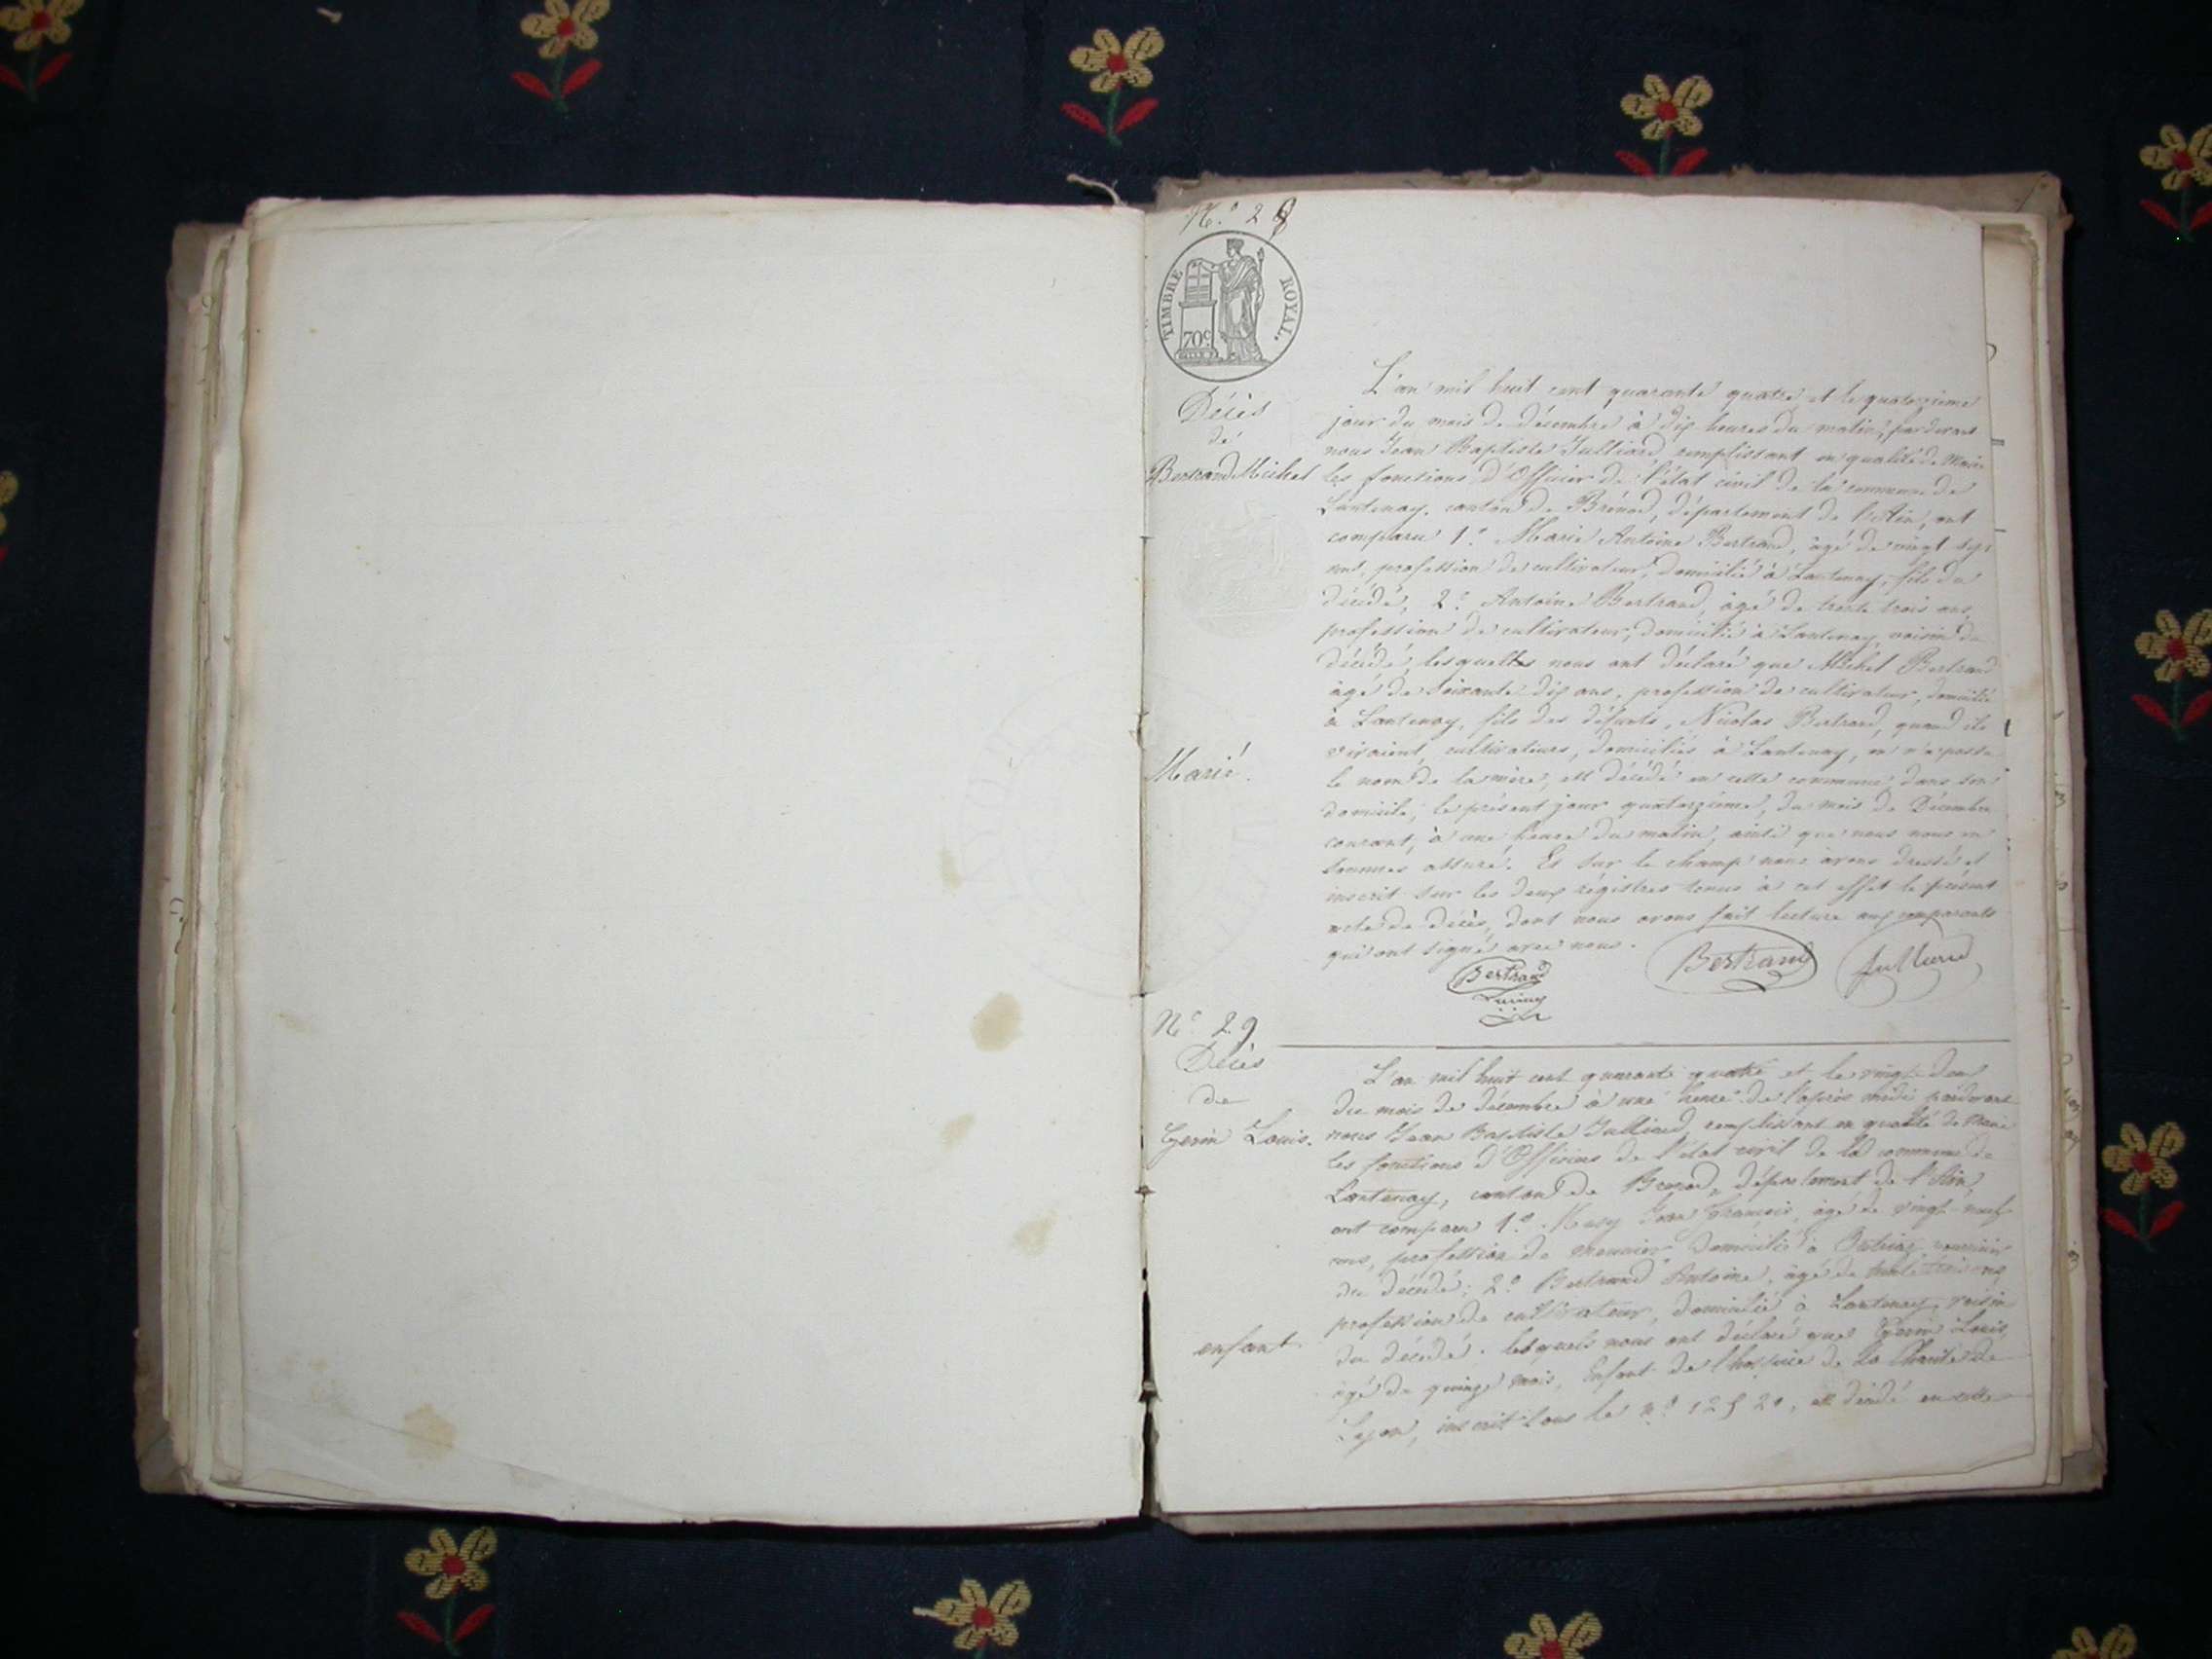 N.º 28
TIMBRE ROYAL.
70c
Décès
de
Bertrand Michel
L'an mil huit cent quarante quatre et le quatorzième
jour du mois de décembre à dix heures du matin, pardevant
nous Jean Baptiste Julliard remplissant en qualité de Maire
les fonctions d'Officier de l'état civil de la commune de
Lantenay, canton de Brénod, département de l'Ain, ont
comparu 1.º Marie Antoine Bertrand, âgé de vingt sept
ans, profession de cultivateur, domicilié à Lantenay, fils du
décédé, 2.º Antoine Bertrand, âgé de trente trois ans,
profession de cultivateur, domicilié à Lantenay, voisin du
décédé, lesquelles nous ont déclaré que Michel Bertrand
âgé de soixante dix ans, profession de cultivateur, domicilié
à Lantenay, fils des défunts, Nicolas Bertrand, quand ils
vivaient, cultivateurs, domiciliés à Lantenay, on n'a pas su
Marié.
le nom de la mère, est décédé en cette commune dans son
domicile, le présent jour quatorzième, du mois de Décembre
courant, à une heure du matin, ainsi que nous nous en
sommes assuré. Et sur le champ nous avons dressé et
inscrit sur les deux régistres tenus à cet effet le présent
acte de décès, dont nous avons fait lecture aux comparants
qui ont signé avec nous.
Bertrand Bertrand Julliard
N.º 29
Décès
de
Gerin Louis.
L'an mil huit cent quarante quatre et le vingt-deux
du mois de décembre à une heure de l'après midi pardevant
nous Jean Baptiste Julliard, remplissant en qualité de Maire
les fonctions d'Officier de l'état civil de la commune de
Lantenay, canton de Brenod, département de l'Ain,
ont comparu 1.º Jean François, âgé de vingt-neuf
ans, profession de meunier domicilié à Outriaz, nourricier
du décédé; 2.º Bertrand Antoine, âgé de trente trois ans,
profession de cultivateur, domicilié à Lantenay, voisin
enfant
du décédé. lesquels nous ont déclaré que Gerin Louis,
âgé de quinze mois, Enfant de l'hospice de la Charité de
Lyon, inscrit sous le n.º est décédé en cette